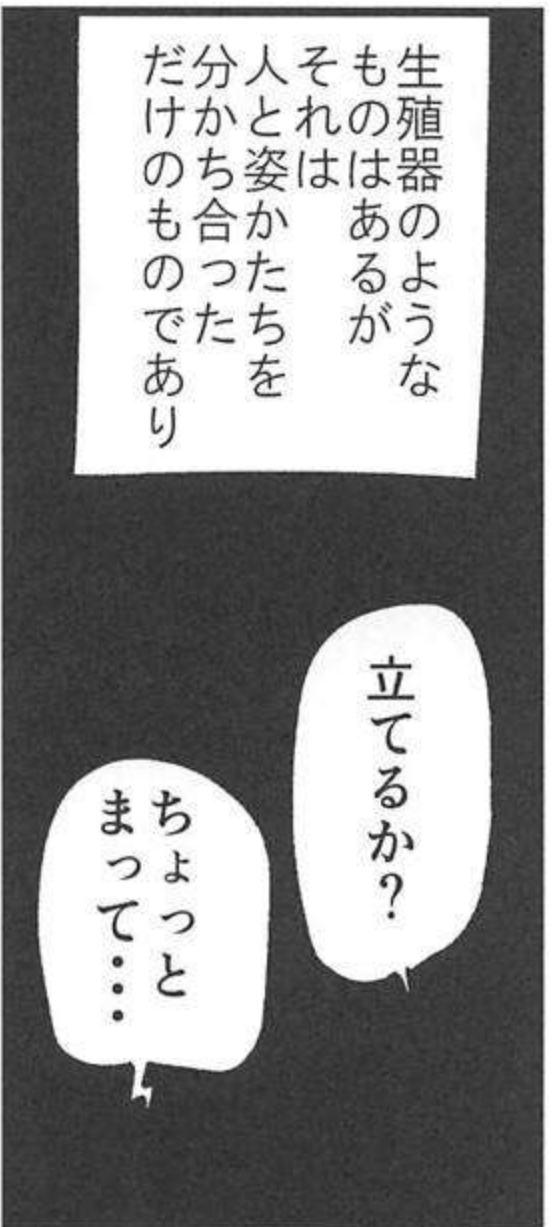 生殖器のような
ものはあるが
それは
人と姿かたちを
分かち合った
だけのものであり
立てるか？
ちょっと
まって・・・